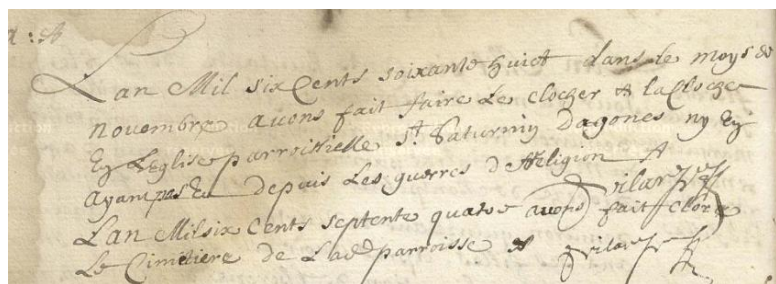 Lan Mil six Cents soixante huict dans le moys de
novembre avons fait faire le clocher & la Cloche
En Leglise parroissielle St Saturnin Dagones ny En
ayant pas Eu depuis Les guerres de Religion
Vilar
Lan Mil six Cents septente quatre avons fait Clore
Le Cimetiere de Lad parroisse Vilar